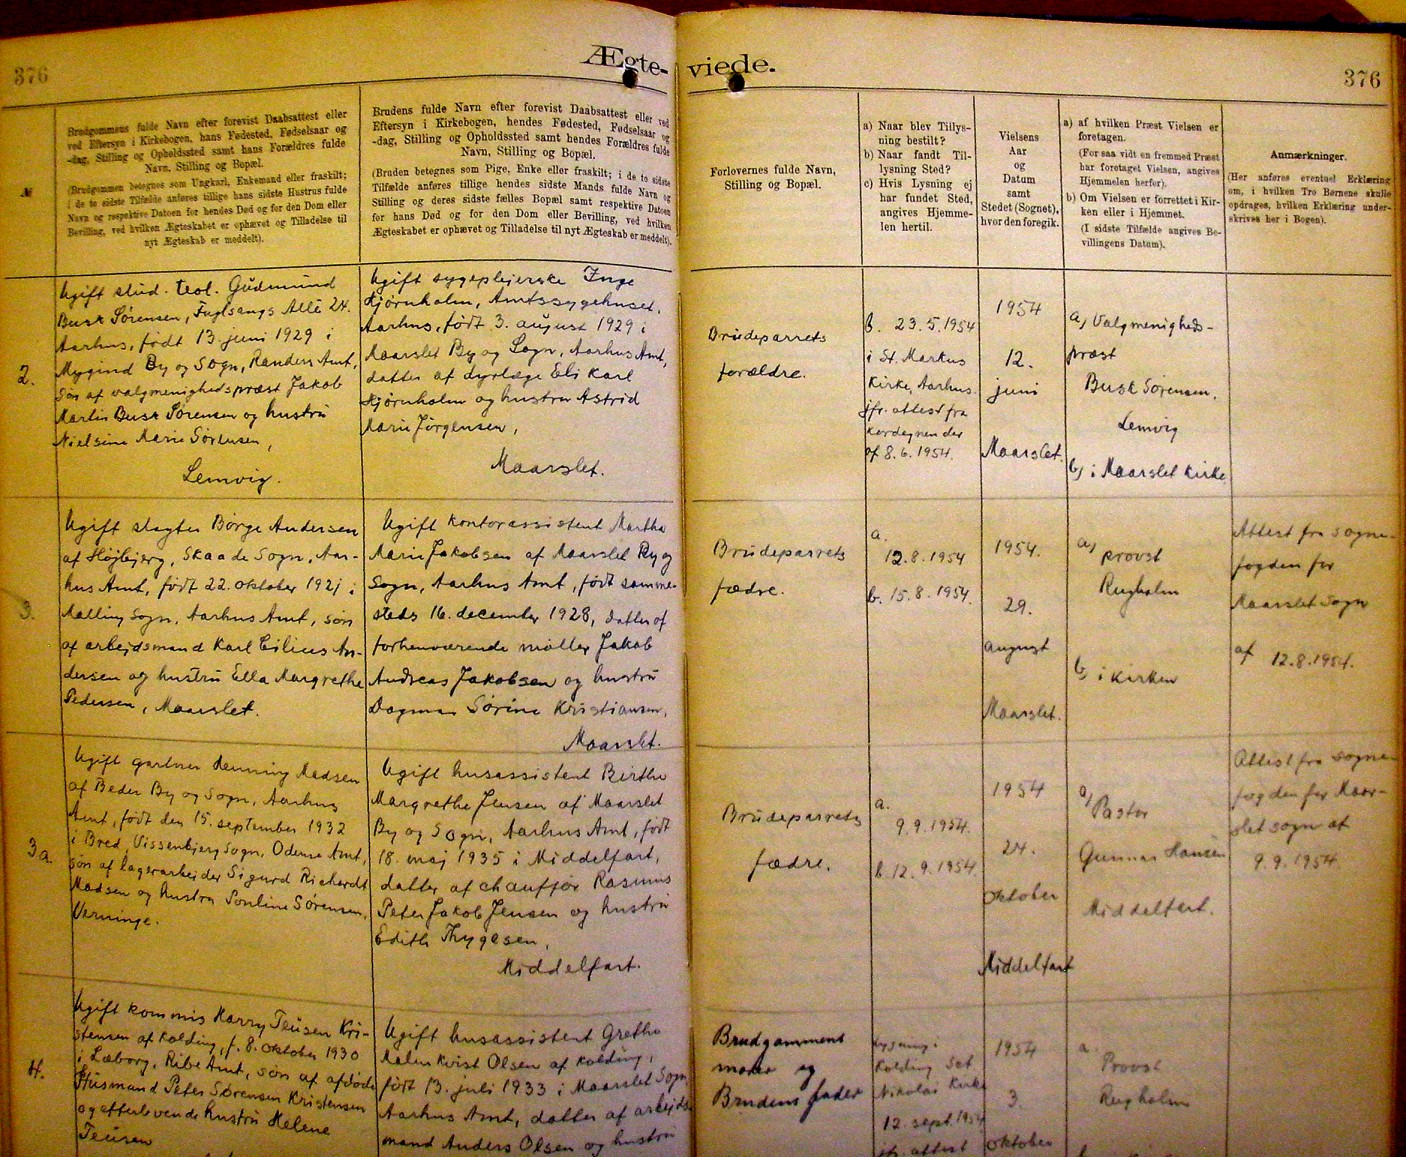 376
Ægte-
viede.
376
№
Brudgommens fulde Navn efter forevist Daabsattest eller
ved Eftersyn i Kirkebogen, hans Fødested, Fødselsaar og
-dag, Stilling og Opholdssted samt hans Forældres fulde
Navn, Stilling og Bopæl.
(Brudgommen betegnes som Ungkarl, Enkemand eller fraskilt;
i de to sidste Tilfælde anføres tillige hans sidste Hustrus fulde
Navn og respektive Datoen for hendes Død og for den Dom eller
Bevilling, ved hvilken Ægteskabet er ophævet og Tilladelse til
nyt Ægteskab er meddelt).
Brudens fulde Navn efter forevist Daabsattest eller ved
Eftersyn i Kirkebogen, hendes Fødested, Fødselsaar og
-dag, Stilling og Opholdssted samt hendes Forældres fulde
Navn, Stilling og Bopæl.
(Bruden betegnes som Pige, Enke eller fraskilt; i de to sidste
Tilfælde anføres tillige hendes sidste Mands fulde Navn og
Stilling og deres sidste fælles Bopæl samt respektive Datoen
for hans Død og for den Dom eller Bevilling, ved hvilken
Ægteskabet er ophævet og Tilladelse til nyt Ægteskab er meddelt).
Forlovernes fulde Navn,
Stilling og Bopæl.
a) Naar blev Tillys-
ning bestilt?
b) Naar fandt Til-
lysning Sted?
c) Hvis Lysning ej
har fundet Sted,
angives Hjemme-
len hertil.
Vielsens
Aar
og
Datum
samt
Stedet (Sognet),
hvor den foregik.
a) af hvilken Præst Vielsen er
foretagen.
(For saa vidt en fremmed Præst
har foretaget Vielsen, angives
Hjemmelen herfor).
b) Om Vielsen er forrettet i Kir-
ken eller i Hjemmet.
(I sidste Tilfælde angives Be-
villingens Datum).
Anmærkninger.
(Her anføres eventuel Erklæring
om, i hvilken Tro Børnene skulle
opdrages, hvilken Erklæring under-
skrives her i Bogen).
2.
Ugift stud. teol. Gudmund
Busk Sørensen, Fuglsangs Allé 24.
Aarhus, født 13. juni 1929 i
Mygind By og Sogn, Randers Amt,
søn af valgmenighedspræst Jakob
Martin Busk Sørensen og hustru
Nielsine Marie Sørensen,
Lemvig.
Ugift sygeplejerske Inge
Hjørnholm, Amtssygehuset,
Aarhus, født 3. august 1929 i
Maarslet By og Sogn, Aarhus Amt,
datter af dyrlæge Eli Karl
Hjørnholm og hustru Astrid
Marie Jörgensen,
Maarslet.
Brudeparrets
forældre.
b. 23.5.1954
i St. Markus
Kirke, Aarhus.
jfr. attest fra
kordegnen der
af 8.6.1954.
1954
12.
juni
Maarslet.
a) Valgmenigheds-
præst
Busk Sørensen.
Lemvig
b) i Maarslet Kirke
3.
Ugift slagter Børge Andersen
af Højbjerg, Skaade Sogn, Aar-
hus Amt, født 22. oktober 1921 i
Malling Sogn, Aarhus Amt, søn
af arbejdsmand Karl Cilius An-
dersen og hustru Ella Margrethe
Pedersen, Maarslet.
Ugift kontorassistent Martha
Marie Jakobsen af Maarslet By og
Sogn, Aarhus Amt, født samme-
steds 16. december 1928, datter af
forhenværende møller Jakob
Andreas Jakobsen og hustru
Dagmar Sörine Kristiansen,
Maarslet.
Brudeparrets
fædre.
a.
12.8.1954
b. 15.8.1954.
1954.
29.
august
Maarslet.
a)
provst
Rugholm
b) i Kirken
Attest fra sogne-
fogden for
Maarslet Sogn
af 12.8.1954.
3a.
Ugift gartner Henning Madsen
af Beder By og Sogn, Aarhus
Amt, født den 15. september 1932
i Bred, Vissenbjerg Sogn, Odense Amt,
søn af lagerarbejder Sigurd Richardt
Madsen og hustru Pouline Sørensen,
Verninge.
Ugift husassistent Birthe
Margrethe Jensen af Maarslet
By og Sogn, Aarhus Amt, født
18. maj 1935 i Middelfart,
datter af chauffør Rasmus
Peter Jakob Jensen og hustru
Edith Thygesen,
Middelfart.
Brudeparrets
fædre.
a.
9.9.1954.
b. 12.9.1954.
1954
24.
oktober
Middelfart
a)
Pastor
Gunnar Hansen
Middelfart.
Attest fra sogne-
fogden for Maar-
slet sogn af
9.9.1954.
4.
Ugift kommis Harry Teüsen Kri-
stensen af Kolding, f. 8. oktober 1930
i Læborg, Ribe Amt, søn af afdøde
Husmand Peter Sørensen Kristensen
og efterlevende hustru Helene
Teüsen
Ugift husassistent Grethe
Malmkvist Olsen af Kolding,
født 13. juli 1933 i Maarslet Sogn,
Aarhus Amt, datter af arbejds-
mand Anders Olsen og hustru
Brudgommens
moder og
Brudens fader
Lysning i
Kolding Sct
Nikolai Kirke
12. sept. 1954
jfr. attest
1954
3.
oktober
a.
Provst
Rugholm